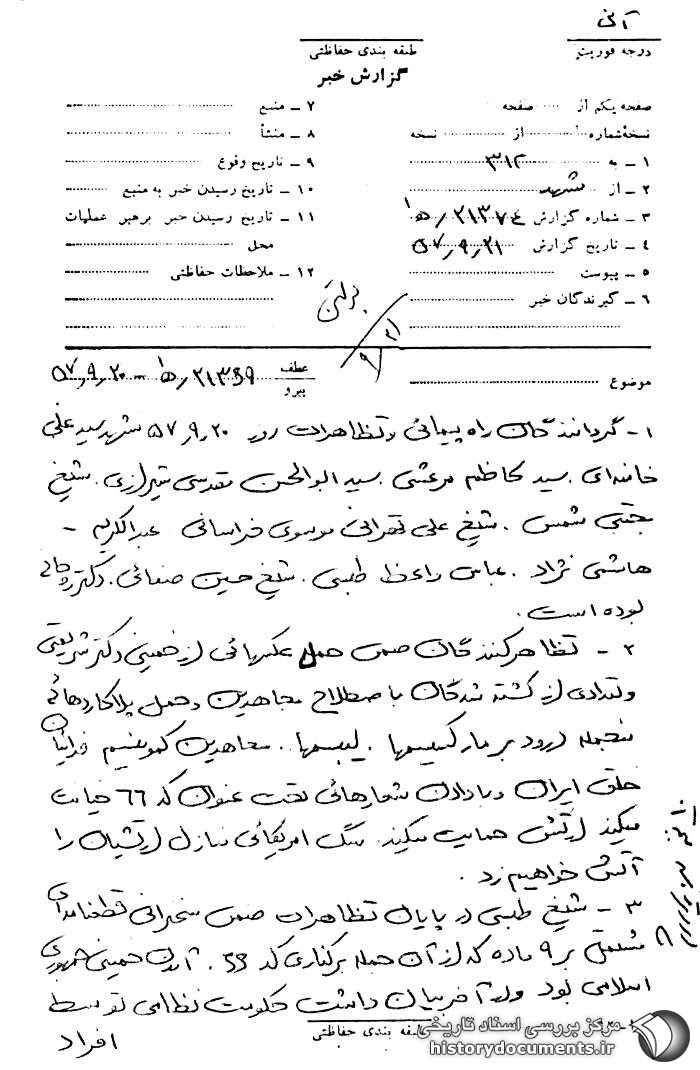 آنی
درجه فوریت
طبقه بندی حفاظتی
گزارش خبر
صفحه یکم از صفحه
نسخهٔ شماره از نسخه
۱ ـ به ۳۱۲
۲ ـ از مشهد
۳ ـ شماره گزارش ۲۱۳۷۴ / ه‍ ۱
۴ ـ تاریخ گزارش ۵۷٫۹٫۲۱
۵ ـ پیوست
۶ ـ گیرندگان خبر
۷ ـ منبع
۸ ـ منشأ
۹ ـ تاریخ وقوع
۱۰ ـ تاریخ رسیدن خبر به منبع
۱۱ ـ تاریخ رسیدن خبر برهبر عملیات
محل
۱۲ ـ ملاحظات حفاظتی
۹/۲۱
موضوع
عطف
پیرو
۵۷٫۹٫۲۰
۱ - گردانندگان راه پیمائی و تظاهرات روز ۵۷٫۹٫۲۰ مشهد سید علی
خامنه‌ای . سید کاظم مرعشی . سید ابوالحسن مقدسی شیرازی . شیخ
مجتبی شمس . شیخ علی تهرانی موسوی خراسانی عبدالکریم -
هاشمی نژاد . عباس واعظ طبسی . شیخ حسین صنعائی . دکتر
بوده است .
۲ - تظاهرکنندگان ضمن حمل عکسهائی از خمینی دکتر شریعتی
و تعدادی از کشته شدگان باصطلاح مجاهدین و حمل پلاکاردهائی
منجمله درود بر مارکسیسمها . لنینیسمها . مجاهدین کمونیسم فدائیان
خلق ایران و با دادن شعارهائی تحت عنوان کد ۶۶ خیانت
میکند ارتش حمایت میکند . سگ امریکائی منازل ارتشیان را
آتش خواهیم زد .
۳ - شیخ طبسی در پایان تظاهرات ضمن سخنرانی قطعنامه‌ای
مشتمل بر ۹ ماده که از آن جمله برکناری کد ۵۵ . آمدن خمینی جمهوری
اسلامی بود و در آخر بیان داشت حکومت نظامی توسط
افراد
طبقه بندی حفاظتی
مرکز بررسی اسناد تاریخی
historydocuments.ir